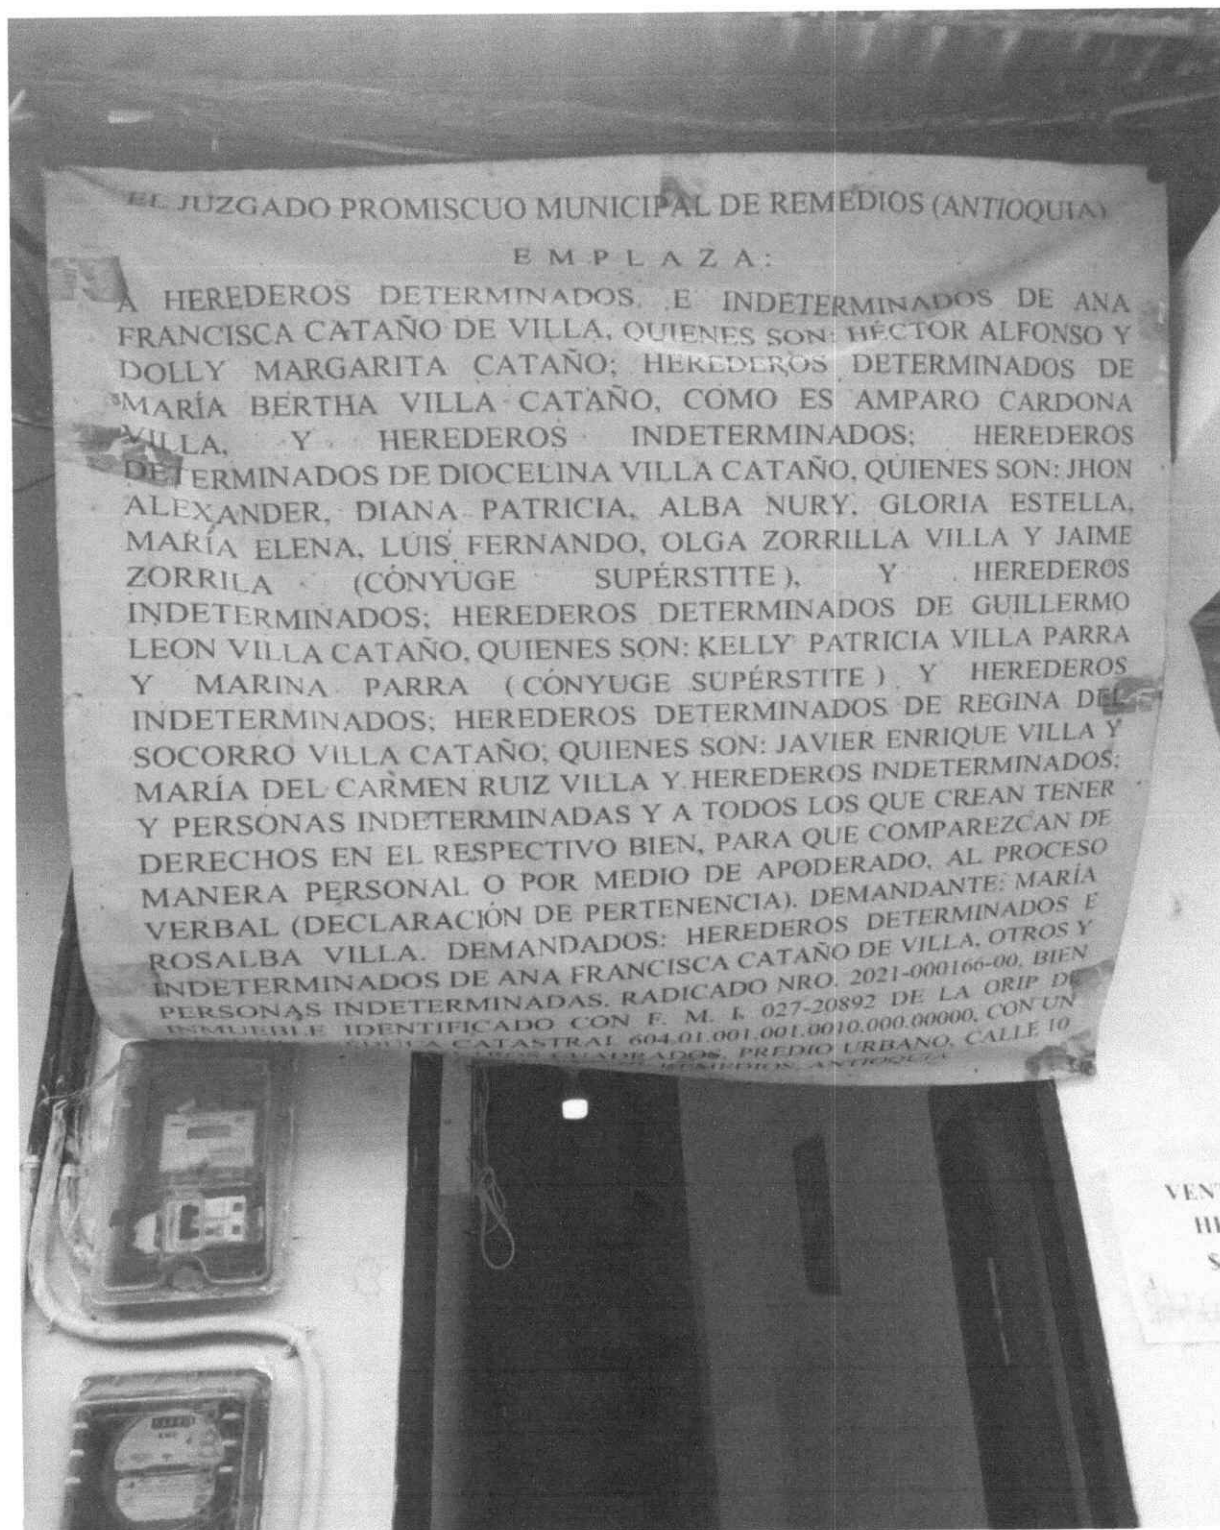 EL JUZGADO PROMISCUO MUNICIPAL DE REMEDIOS (ANTIOQUIA)
E M P L A Z A :
A HEREDEROS DETERMINADOS, E INDETERMINADOS DE ANA
FRANCISCA CATAÑO DE VILLA, QUIENES SON: HÉCTOR ALFONSO Y
DOLLY MARGARITA CATAÑO; HEREDEROS DETERMINADOS DE
MARÍA BERTHA VILLA CATAÑO, COMO ES AMPARO CARDONA
VILLA, Y HEREDEROS INDETERMINADOS; HEREDEROS
DETERMINADOS DE DIOCELINA VILLA CATAÑO, QUIENES SON: JHON
ALEXANDER, DIANA PATRICIA, ALBA NURY, GLORIA ESTELLA,
MARÍA ELENA, LUIS FERNANDO, OLGA ZORRILLA VILLA Y JAIME
ZORRILA (CÓNYUGE SUPÉRSTITE), Y HEREDEROS
INDETERMINADOS; HEREDEROS DETERMINADOS DE GUILLERMO
LEON VILLA CATAÑO, QUIENES SON: KELLY PATRICIA VILLA PARRA
Y MARINA PARRA (CÓNYUGE SUPÉRSTITE) Y HEREDEROS
INDETERMINADOS; HEREDEROS DETERMINADOS DE REGINA DEL
SOCORRO VILLA CATAÑO, QUIENES SON: JAVIER ENRIQUE VILLA Y
MARÍA DEL CARMEN RUIZ VILLA Y HEREDEROS INDETERMINADOS;
Y PERSONAS INDETERMINADAS Y A TODOS LOS QUE CREAN TENER
DERECHOS EN EL RESPECTIVO BIEN, PARA QUE COMPAREZCAN DE
MANERA PERSONAL O POR MEDIO DE APODERADO, AL PROCESO
VERBAL (DECLARACIÓN DE PERTENENCIA). DEMANDANTE: MARÍA
ROSALBA VILLA. DEMANDADOS: HEREDEROS DETERMINADOS E
INDETERMINADOS DE ANA FRANCISCA CATAÑO DE VILLA, OTROS Y
PERSONAS INDETERMINADAS. RADICADO NRO. 2021-000166-00. BIEN
INMUEBLE IDENTIFICADO CON F. M. I. 027-20892 DE LA ORIP DE
CATASTRAL 604.01.001.001.0010.000.00000, CON UN
CUADRADOS, PREDIO URBANO, CALLE 10
REMEDIOS, ANTIOQUIA
VENT